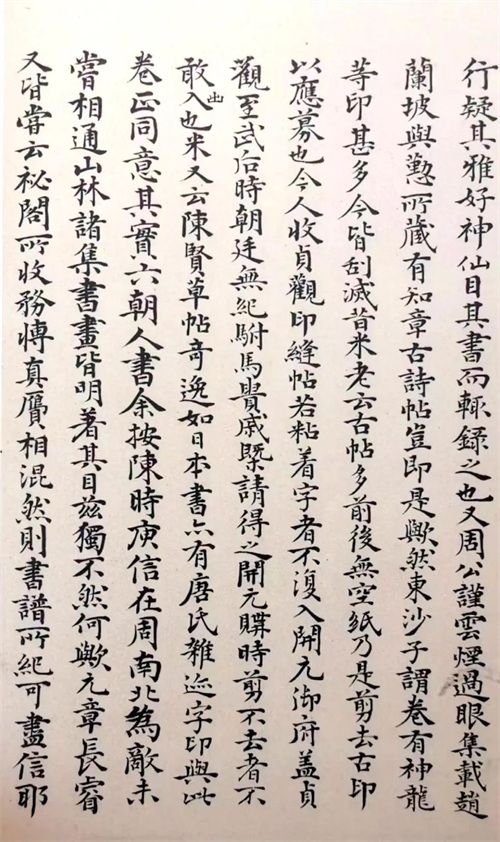 行疑其雅好神仙目其書而輒錄之也又周公謹雲煙過眼集載趙
蘭坡與懃所藏有知章古詩帖豈即是歟然東沙子謂卷有神龍
等印甚多今皆刮滅昔米老云古帖多前後無空紙乃是剪去古印
以應募也今人收貞觀印縫帖若粘着字者不復入開元御府盖貞
觀至武后時朝廷無紀駙馬貴戚㮣請得之開元購時剪不去者不
敢出入也米又云陳賢草帖奇逸如日本書亦有唐氏雜迹字印與此
卷正同意其實六朝人書余按陳時庾信在周南北為敵未
嘗相通山林諸集書畫皆明著其目兹獨不然何歟元章長睿
又皆嘗云祕閣所收務博真贋相混然則書譜所紀可盡信耶